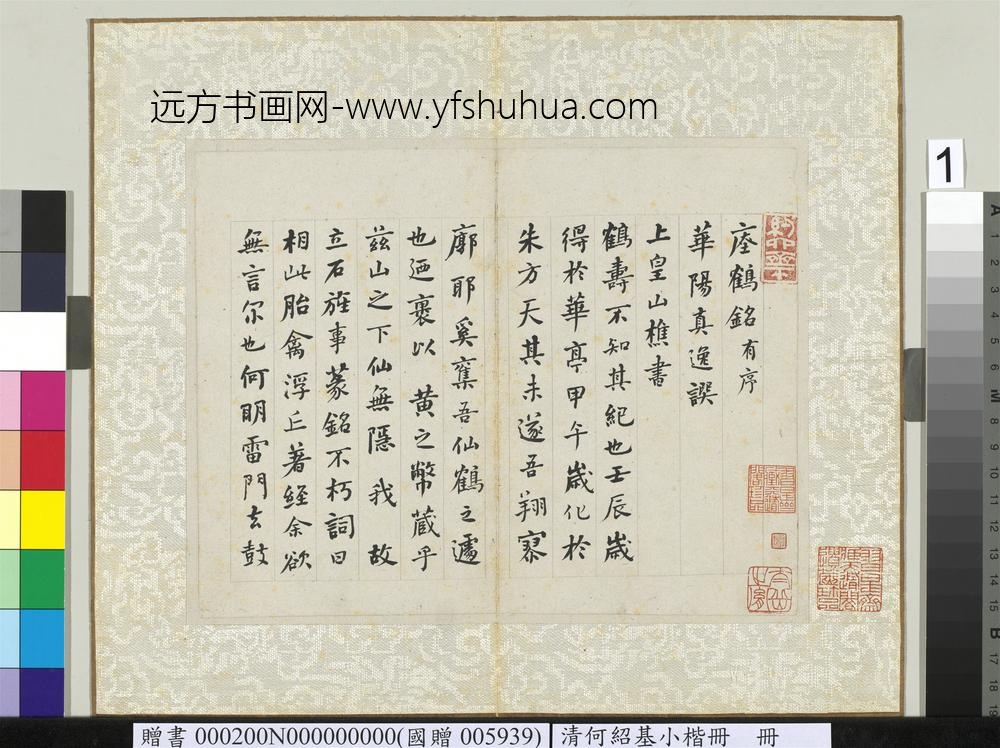 远方书画网-www.yfshuhua.com
1
瘞鶴銘有序
華陽真逸譔
上皇山樵書
鶴壽不知其紀也壬辰歲
得於華亭甲午歲化於
朱方天其未遂吾翔寥
廓耶奚奪吾仙鶴之遽
也廼裹以 黄之幣藏乎
茲山之下仙無隱 我 故
立石旌事篆銘不朽詞曰
相此胎禽浮丘著經余欲
無言尔也何明雷門去鼓
贈書 000200N000000000(國贈 005939)
清何紹基小楷冊 冊